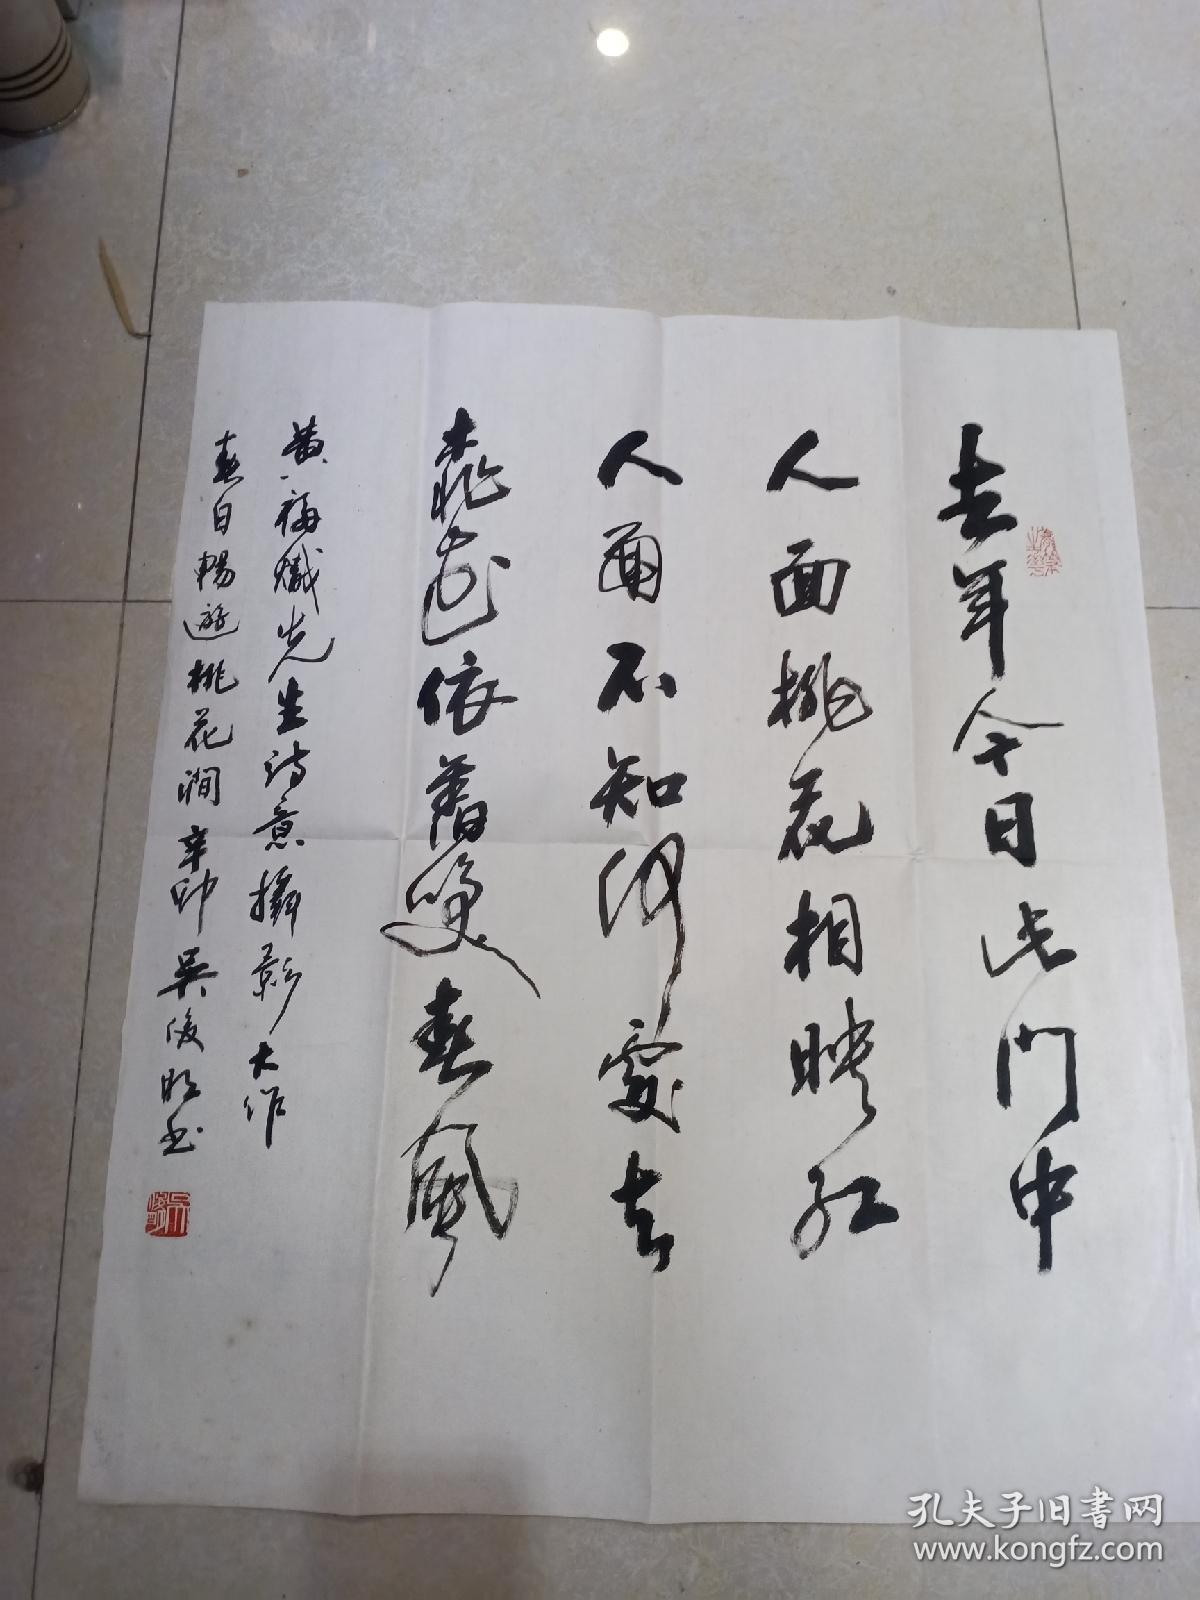 去年今日此门中
人面桃花相映红
人面不知何處去
桃花依舊笑春風
黄福熾先生诗意攝影大作
春日暢遊桃花澗辛卯吴俊明书
孔夫子旧书网
www.kongfz.com